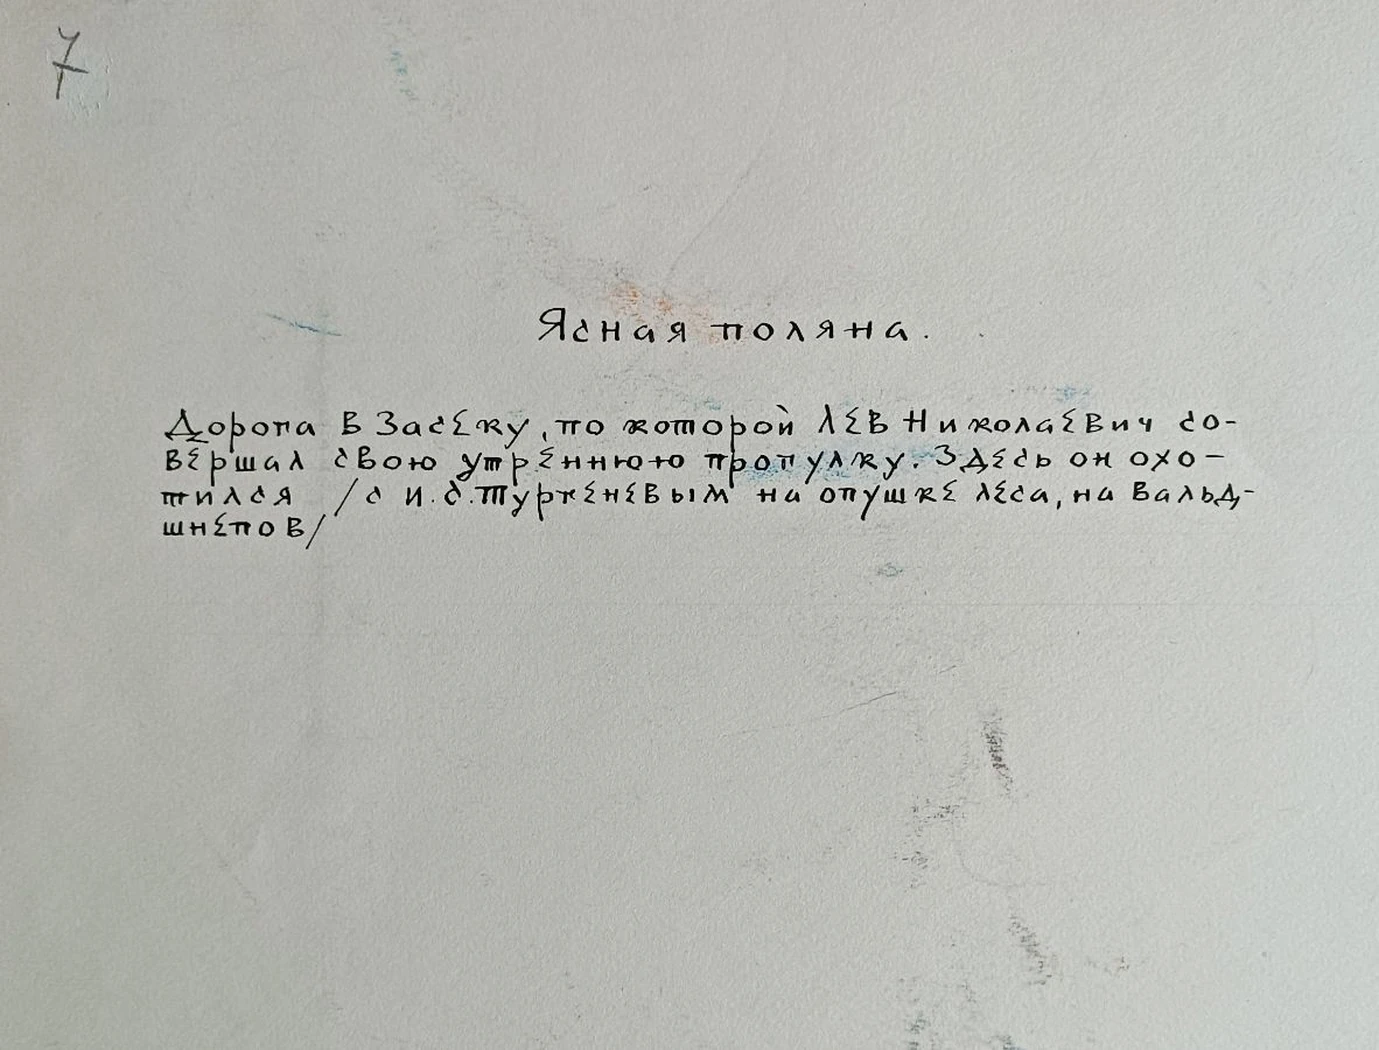 7
Ясная поляна.
Дорога в Засеку, по которой Лев Николаевич со-
вершал свою утреннюю прогулку. Здесь он охо-
тился /с И.С.Тургеневым на опушке леса, на вальд-
шнепов/